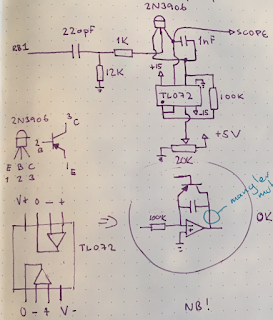 2N3906
220pF
1K
1nF
RB1
→SCOPE
12K
+15
TL072
-15
100K
+5V
20K
2N3906
3
C
2
B
E
1
E B C
1 2 3
V+ O - +
TL072
O - + V-
⇒
100K
OK
NB!